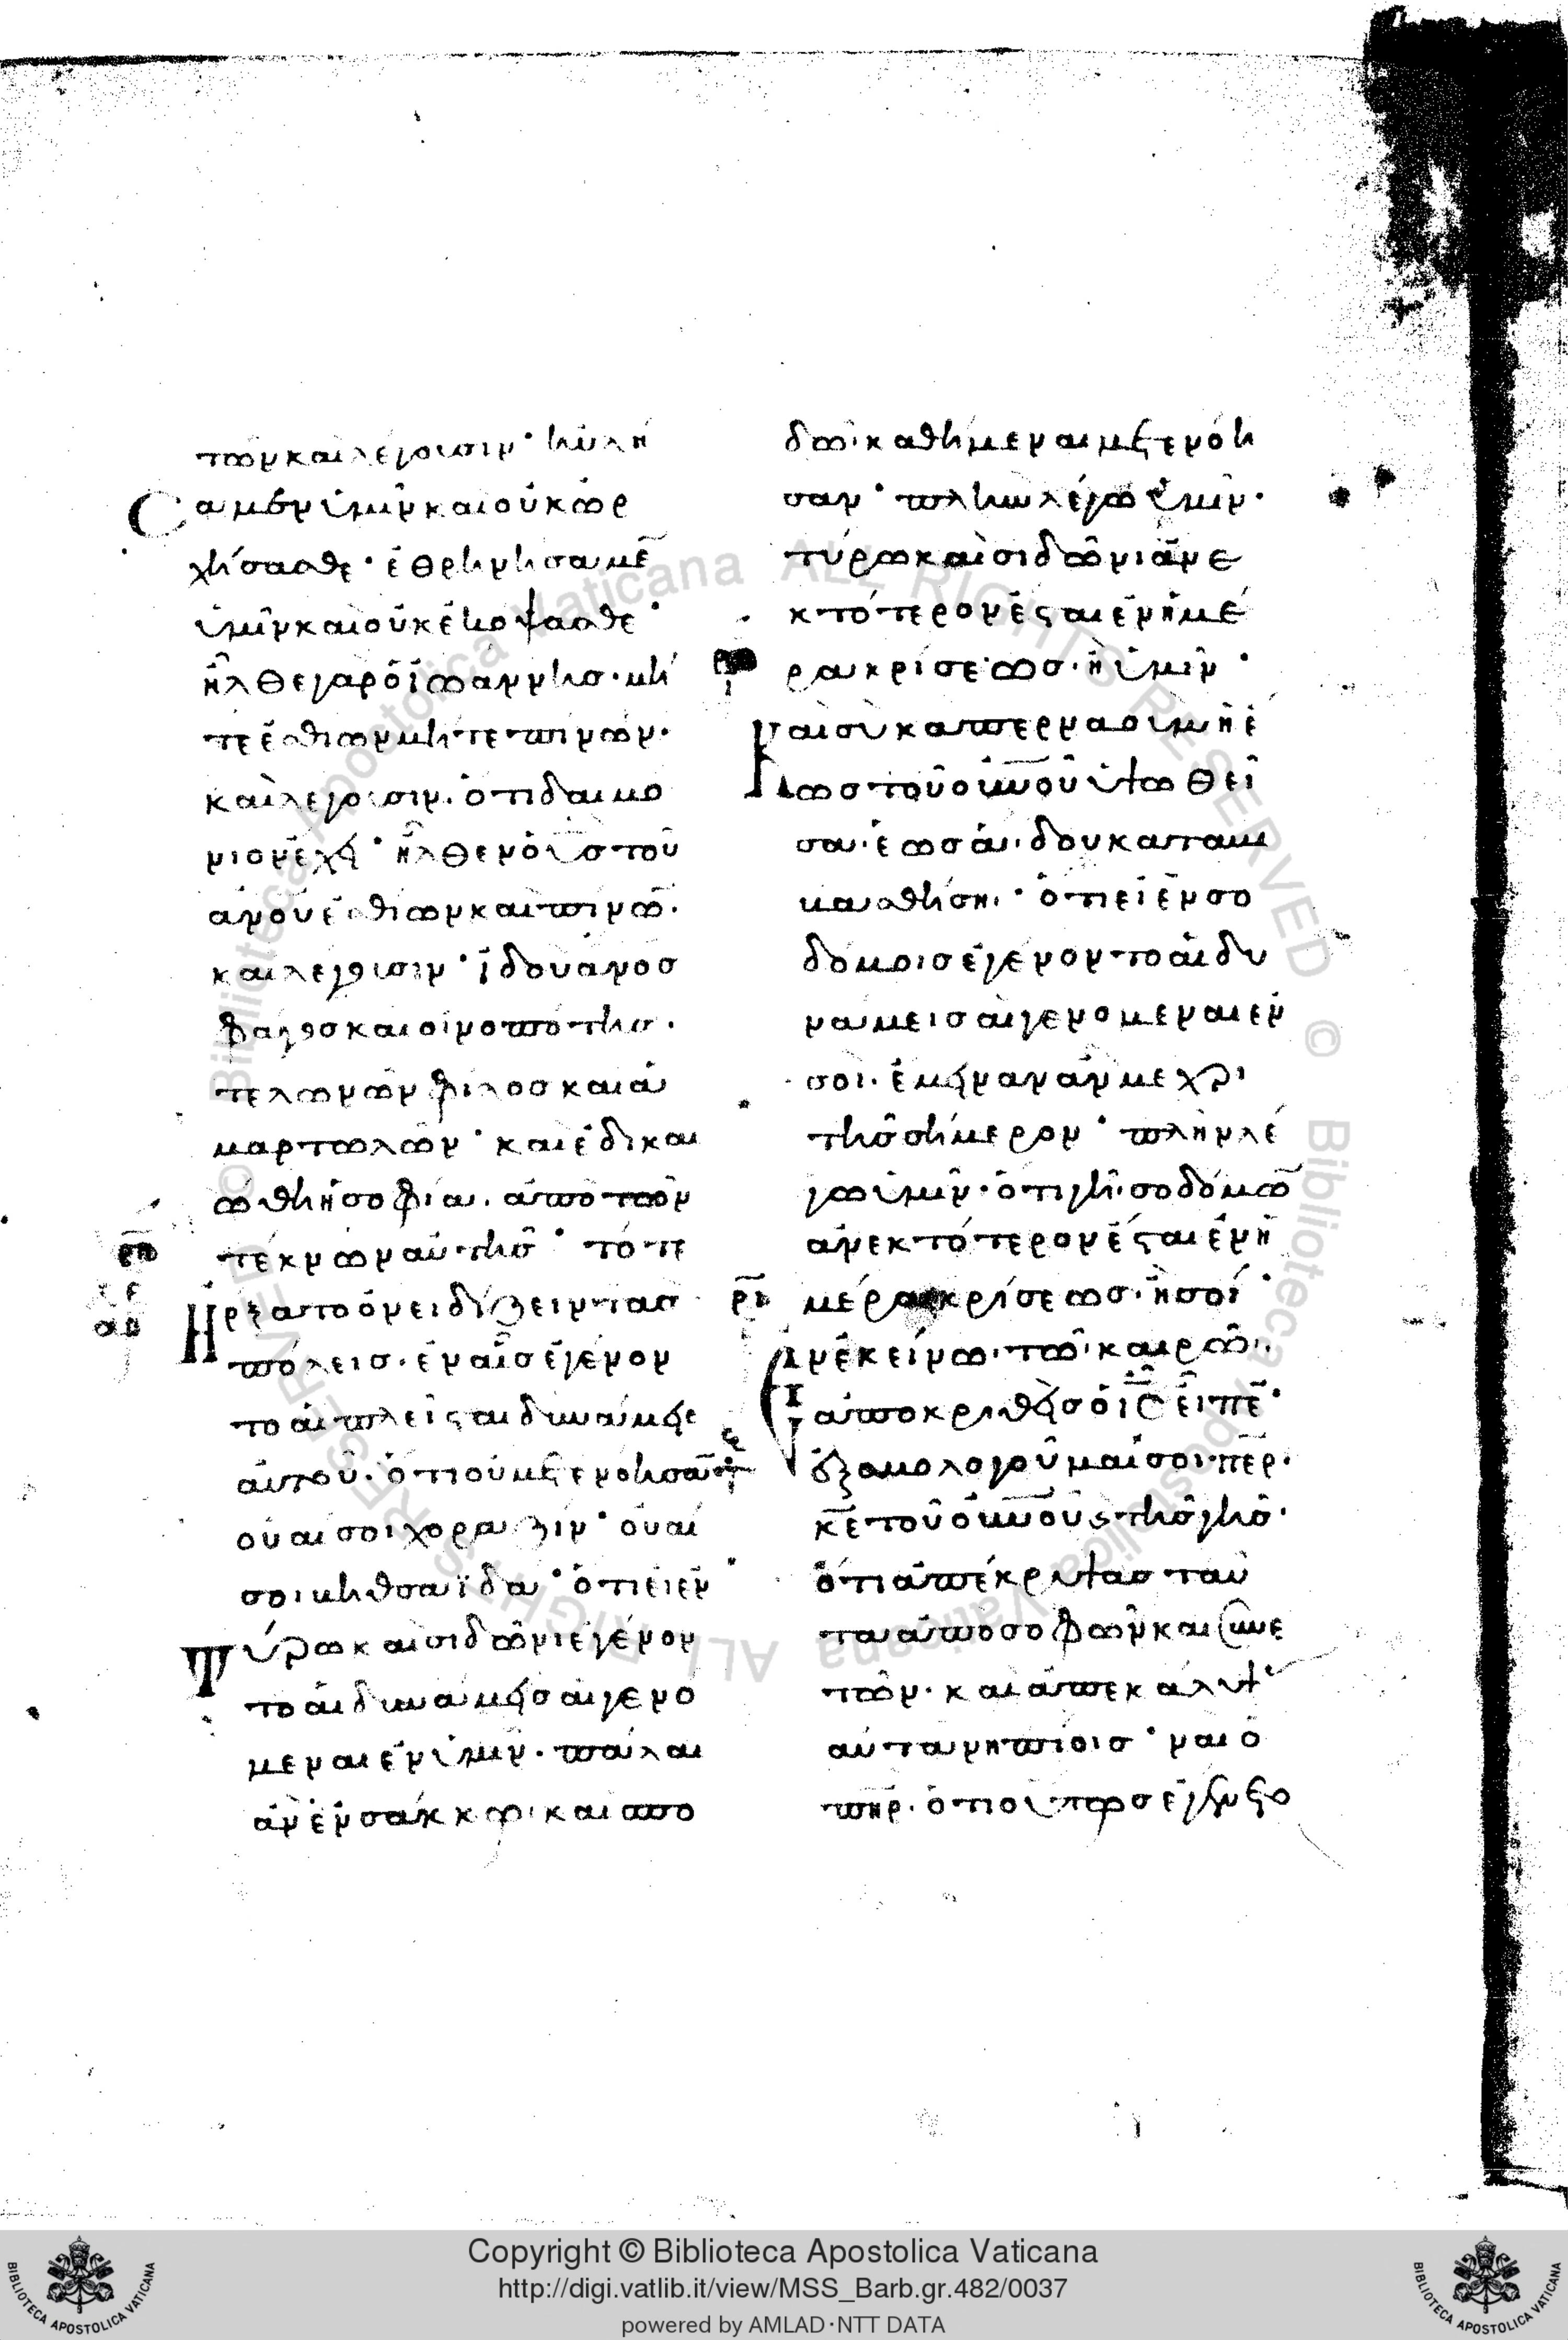 των και λέγουσιν· ηὐλή
σαμεν ὑμῖν και οὐκ ὠρ
χήσασθε· ἐθρηνήσαμε̅
ὑμῖν και οὐκ ἐκόψασθε·
ἦλθε γαρ ὁ ἰωάννησ· μή
τε ἐσθίων μήτε πίνων·
και λέγουσιν· ὅτι δαιμό
νιον ἔχει· ἦλθεν ὁ υ̅σ του
α̅νου ἐσθίων και πίνω̅·
και λέγουσιν· ἰδου α̅νοσ
φάγοσ και οἰνοπότησ·
τελωνῶν φίλοσ και ἁ
μαρτωλῶν· και ἐδικαι
ώθη ἡ σοφία· ἀπο των
τέκνων αὐτῆσ· τότε
ἤρξατο ὀνειδίζειν τασ
πόλεισ· ἐν αἷσ ἐγένον
το αἱ πλεῖσται δυνάμεισ
αὐτοῦ· ὅτι οὐ μετενόησα̅·
οὐαί σοι χοραζίν· οὐαί
σοι βηθσαϊδά· ὅτι εἰ ἐν
τύρω και σιδῶνι ἐγένον
το αἱ δυνάμεισ αἱ γενό
μεναι ἐν ὑμῖν· πάλαι
ἀν ἐν σάκκω και σπο
δῶ καθήμεναι μετενόη
σαν· πλην λέγω ὑμῖν·
τύρω και σιδῶνι ἀνε
κτότερον ἔσται ἐν ἡμέ
ρα κρίσεωσ· ἢ ὑμῖν·
και συ καπερναουμ ἡ ἕ
ωσ του ο̅υνου ὑψωθεῖ
σα· ἕωσ ἅδου καταβι
βασθήση· ὅτι εἰ ἐν σο
δόμοισ ἐγένοντο αἱ δυ
νάμεισ αἱ γενόμεναι ἐν
σοι· ἔμειναν ἀν μέχρι
τῆσ σήμερον· πλην λέ
γω ὑμῖν· ὅτι γῆ σοδόμω̅
ἀνεκτότερον ἔσται ἐν ἡ
μέρα κρίσεωσ· ἢ σοί·
ἐν ἐκείνω τῶ καιρῶ
ἀποκριθεὶσ ὁ ι̅σ εἶπε̅·
ἐξομολογοῦμαί σοι π̅ερ·
κ̅ε του ο̅υνου και τῆσ γῆσ·
ὅτι ἀπέκρυψασ ταῦ
τα ἀπο σοφῶν και συνε
τῶν· και ἀπεκάλυψασ
αὐτα νηπίοισ· ναι ὁ
π̅ηρ· ὅτι οὕτωσ ἐγένετο
Copyright © Biblioteca Apostolica Vaticana
http://digi.vatlib.it/view/MSS_Barb.gr.482/0037
powered by AMLAD·NTT DATA